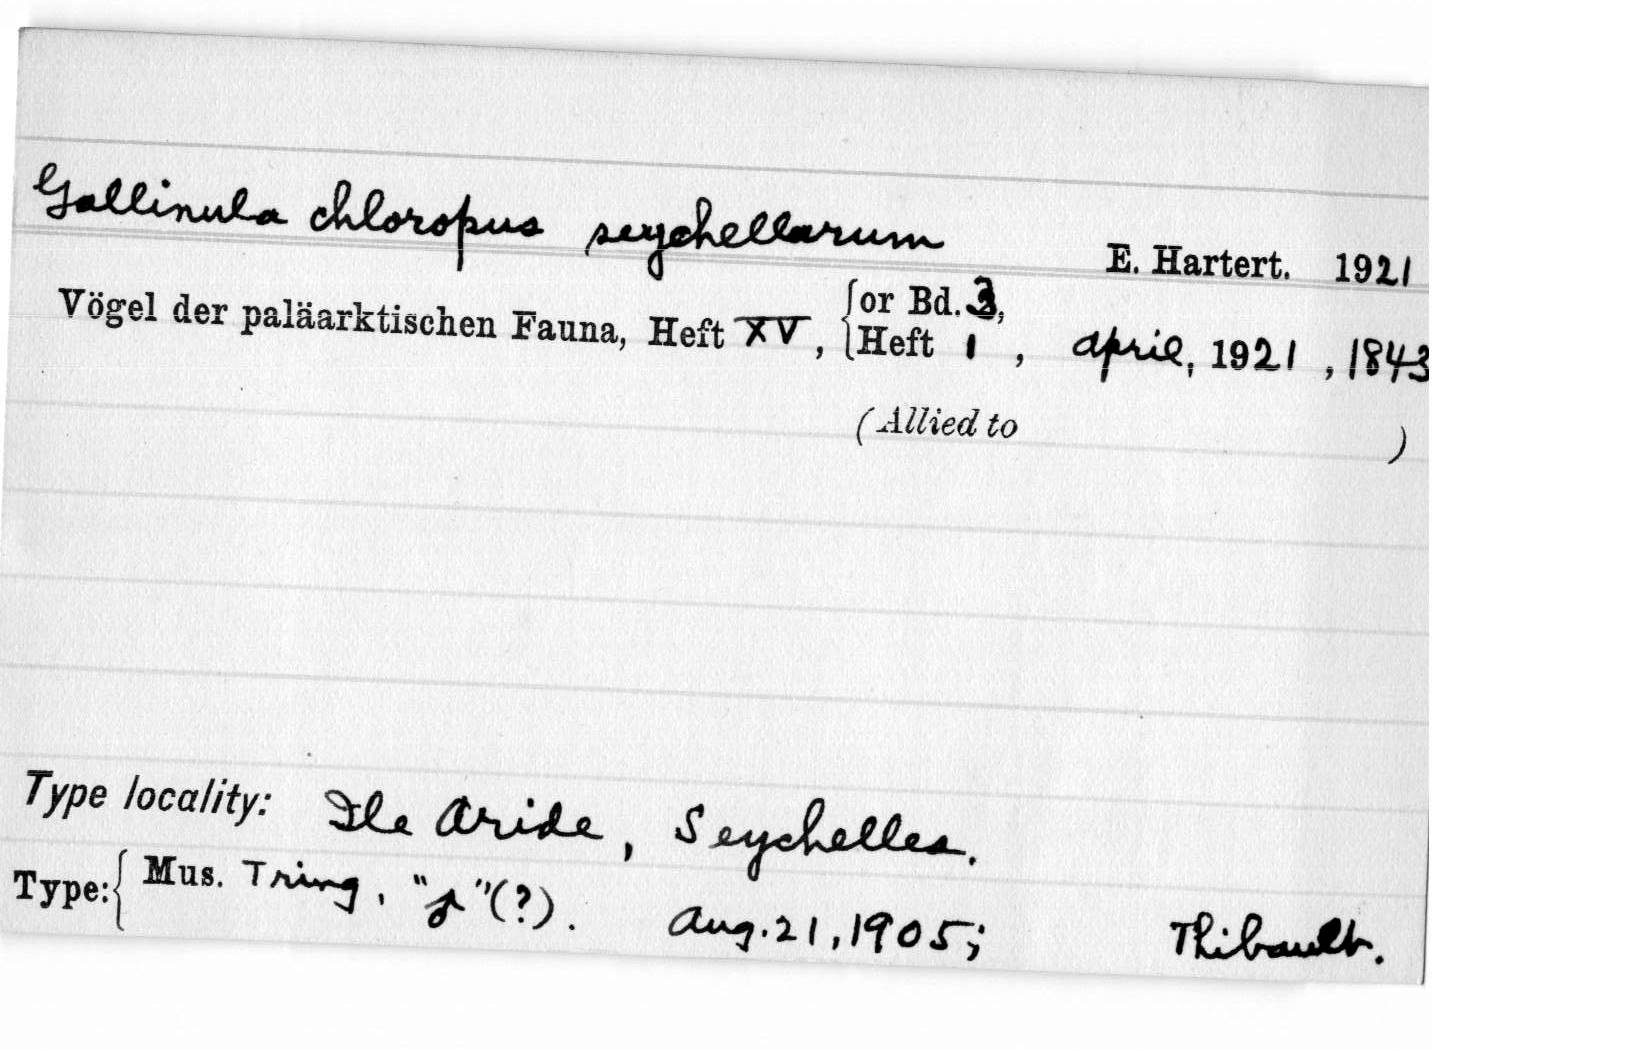 Gallinula chloropus seychellarum E. Hartert. 1921
Vögel der paläarktischen Fauna, Heft XV, {or Bd. 3,
{Heft 1, April, 1921, 1843
(Allied to )
Type locality: Ile Aride, Seychelles.
Type: { Mus. Tring, "♂"(?). Aug. 21, 1905; Thibault.